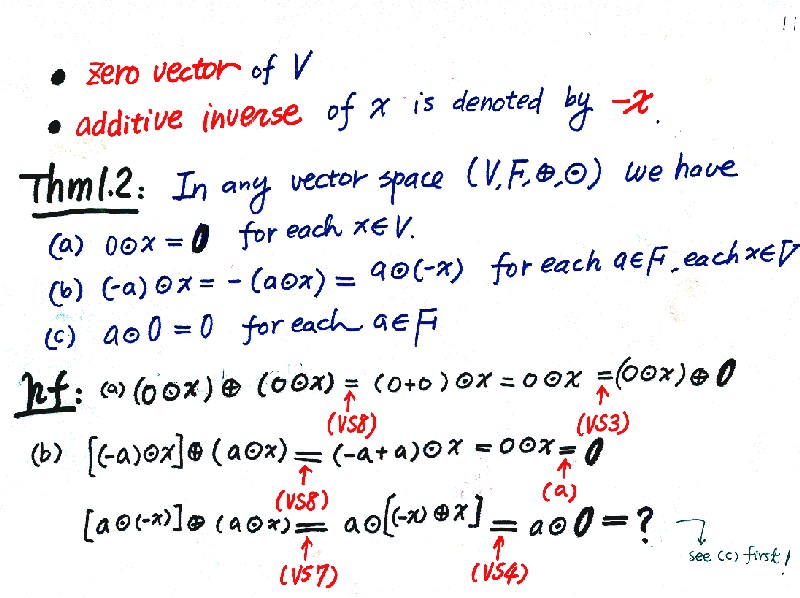 11
• zero vector of V
• additive inverse of x is denoted by -x.
Thm1.2: In any vector space (V,F,⊕,⊙) we have
(a) 0⊙x = 0 for each x∈V.
(b) (-a)⊙x = -(a⊙x) = a⊙(-x) for each a∈F, each x∈V
(c) a⊙0 = 0 for each a∈F
pf: (a) (0⊙x) ⊕ (0⊙x) = (0+0)⊙x = 0⊙x = (0⊙x)⊕0
↑ ↑
(VS8) (VS3)
(b) [(-a)⊙x]⊕(a⊙x) = (-a+a)⊙x = 0⊙x = 0
↑ ↑
(VS8) (a)
[a⊙(-x)]⊕(a⊙x) = a⊙[(-x)⊕x] = a⊙0 = ?
↑ ↑
(VS7) (VS4)
see (c) first!